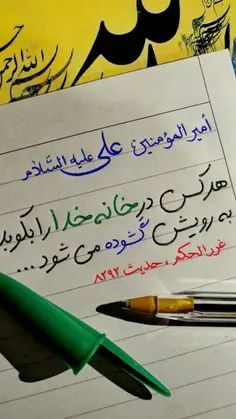 الله
أمیرالمؤمنین علی علیه السّلام
هرکس در خانه خدا را بکوبد
به رویش گشوده می شود ...
غررالحکم ، حدیث ۸۲۹۲